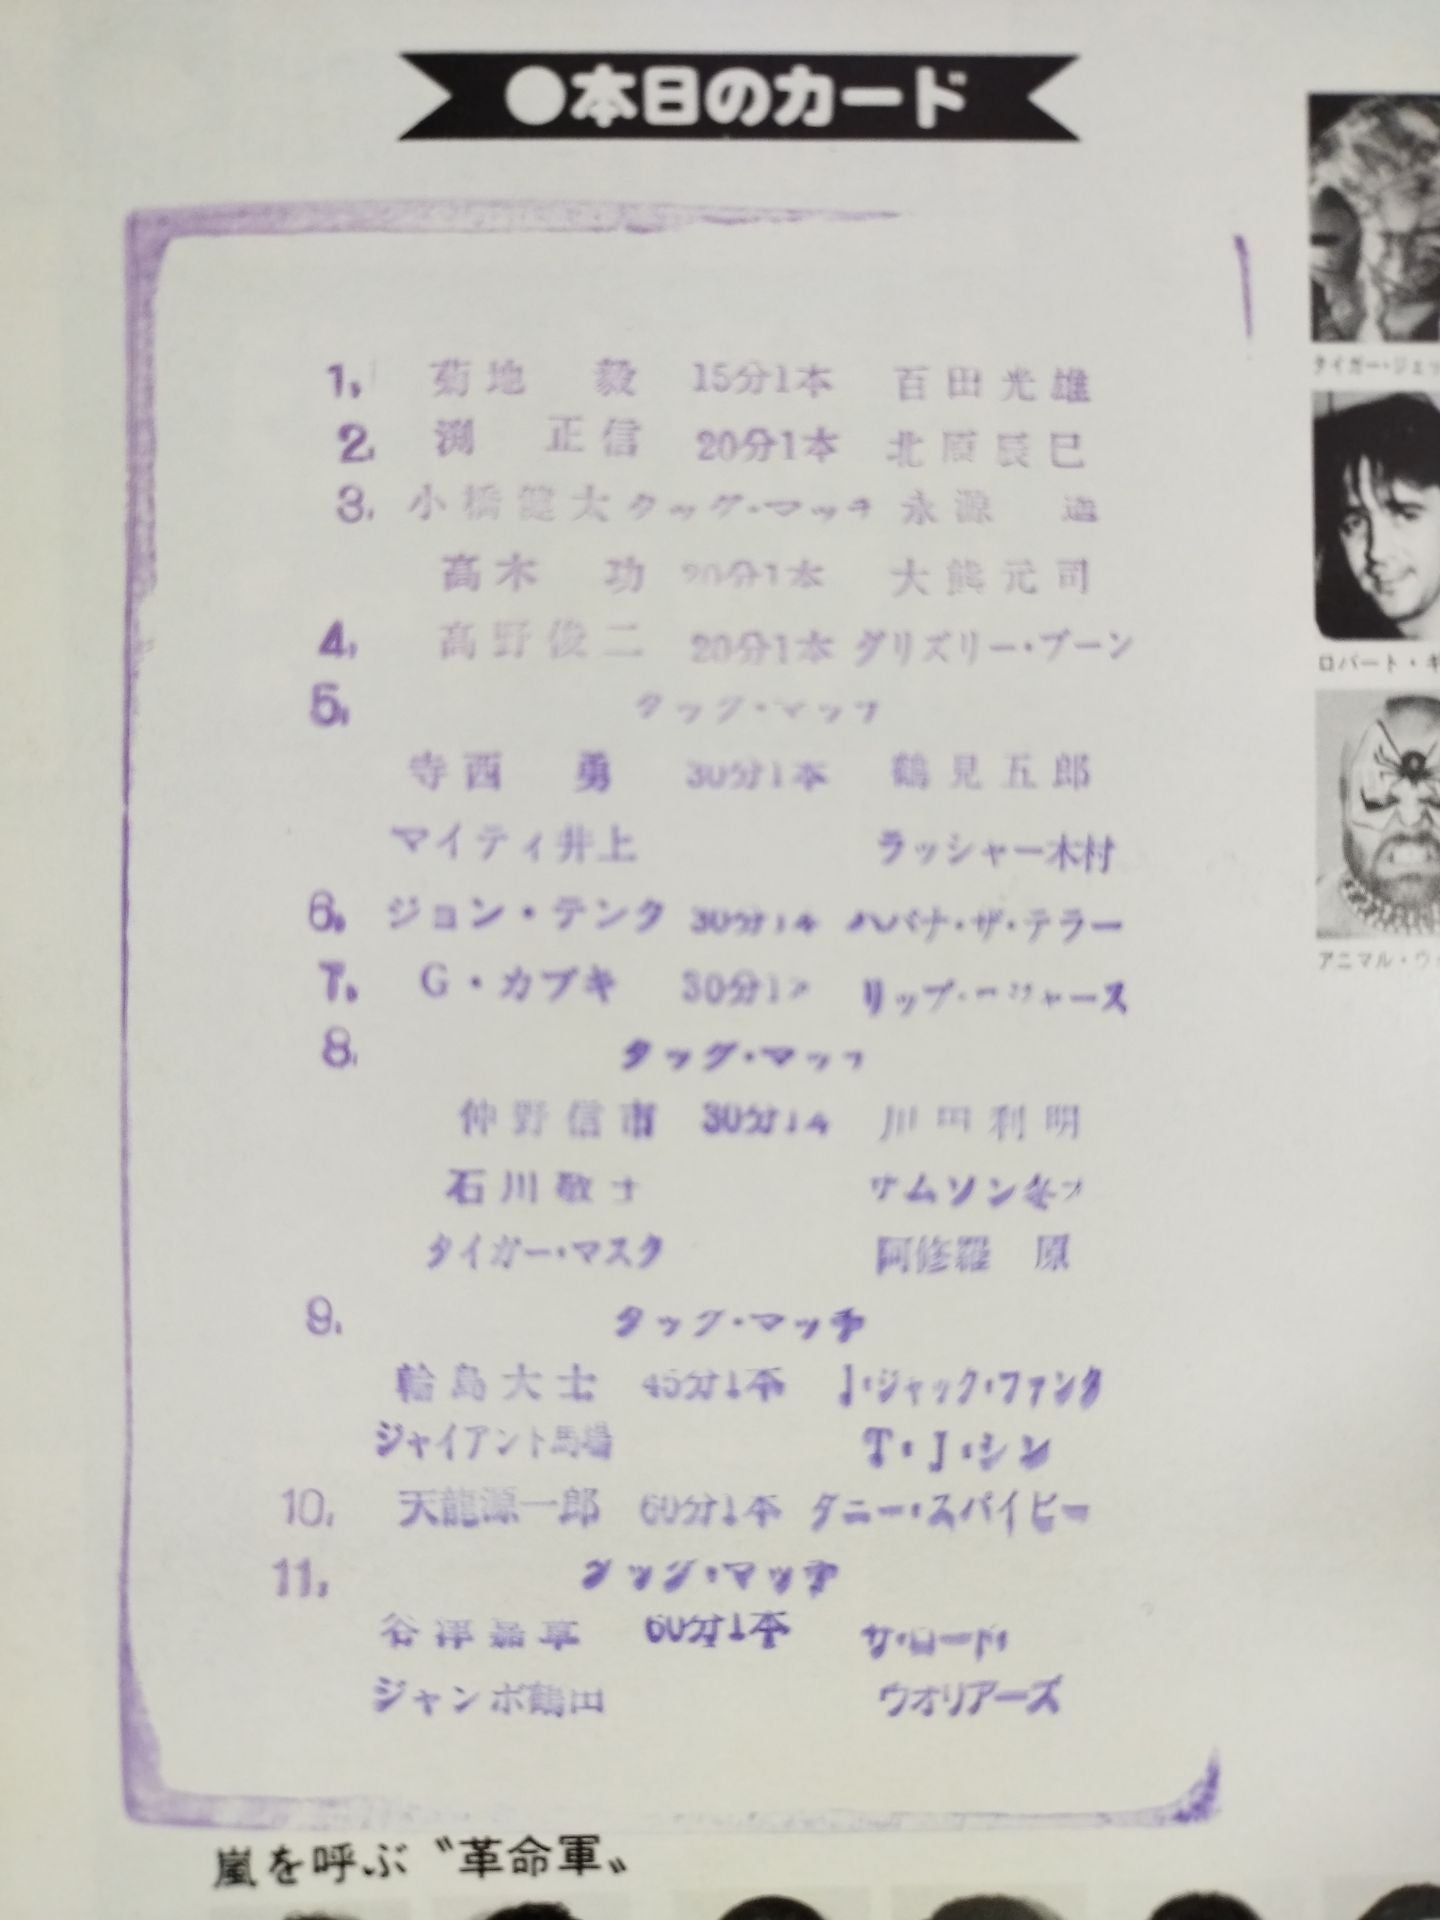 ●本日のカード
1. 菊地 毅 15分1本 百田光雄
2. 渕 正信 20分1本 北原辰巳
3. 小橋健太 タッグ・マッチ 永源 遙
高木 功 20分1本 大熊元司
4. 高野俊二 20分1本 グリズリー・ブーン
5. タッグ・マッチ
寺西 勇 30分1本 鶴見五郎
マイティ井上 ラッシャー木村
6. ジョン・テンタ 30分1本 ハバナ・ザ・テラー
7. G・カブキ 30分1本 リップ・ロジャース
8. タッグ・マッチ
仲野信市 30分1本 川田利明
石川敬士 サムソン冬木
タイガー・マスク 阿修羅 原
9. タッグ・マッチ
輪島大士 45分1本 J・ジャック・ファンク
ジャイアント馬場 T・J・シン
10. 天龍源一郎 60分1本 ダニー・スパイビー
11. タッグ・マッチ
谷津嘉章 60分1本 ザ・ロード・
ジャンボ鶴田 ウオリアーズ
嵐を呼ぶ〝革命軍〟
タイガー・ジェッ
ロバート・ギ
アニマル・ウォ